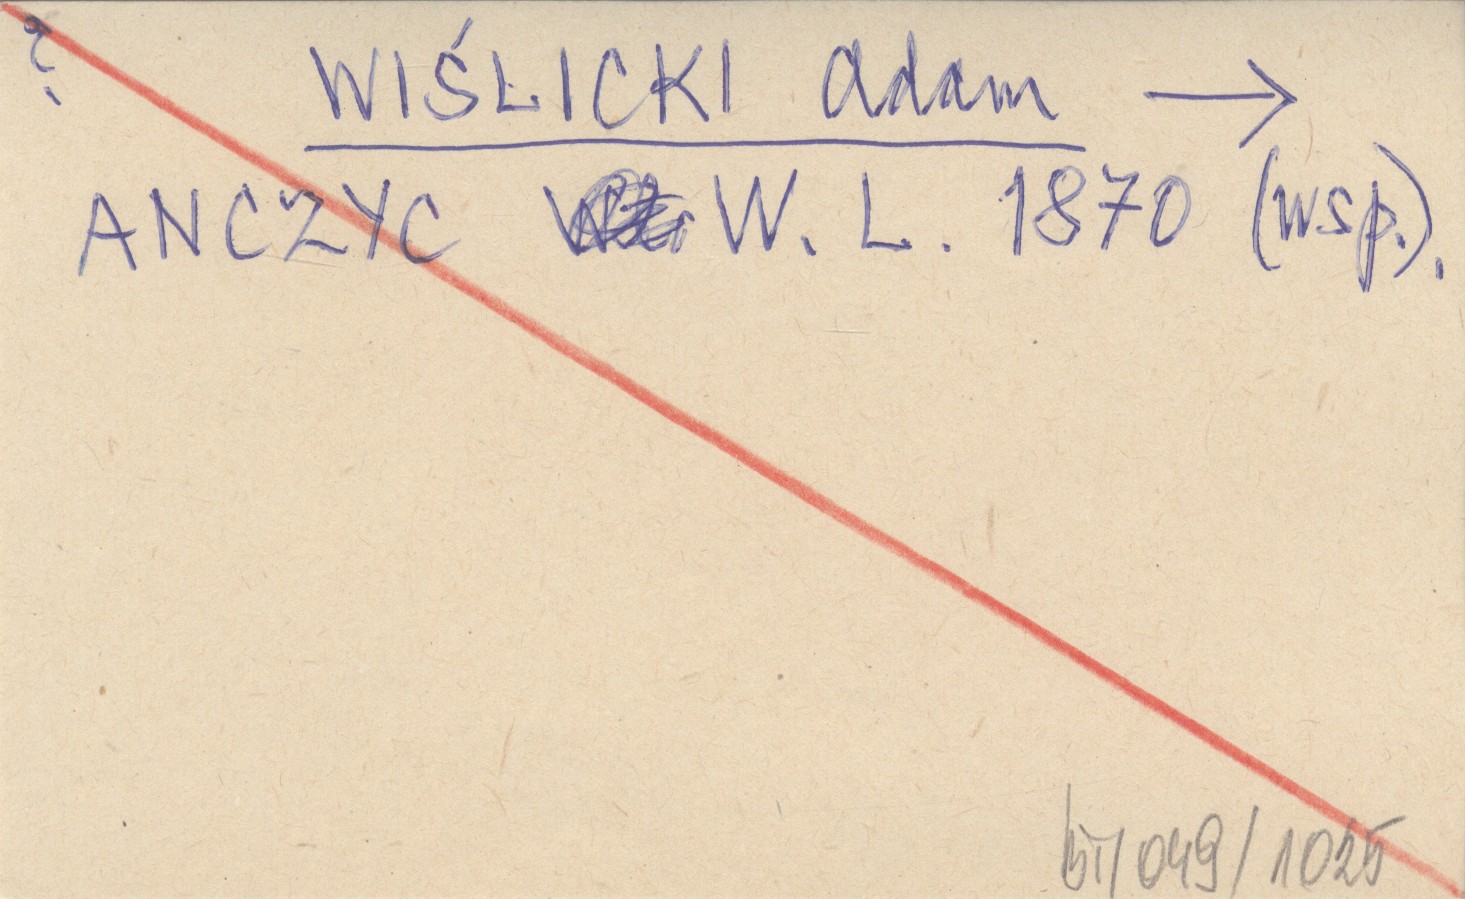 ?
WIŚLICKI Adam →
ANCZYC W. L. 1870 (wsp.).
bi/049/1025